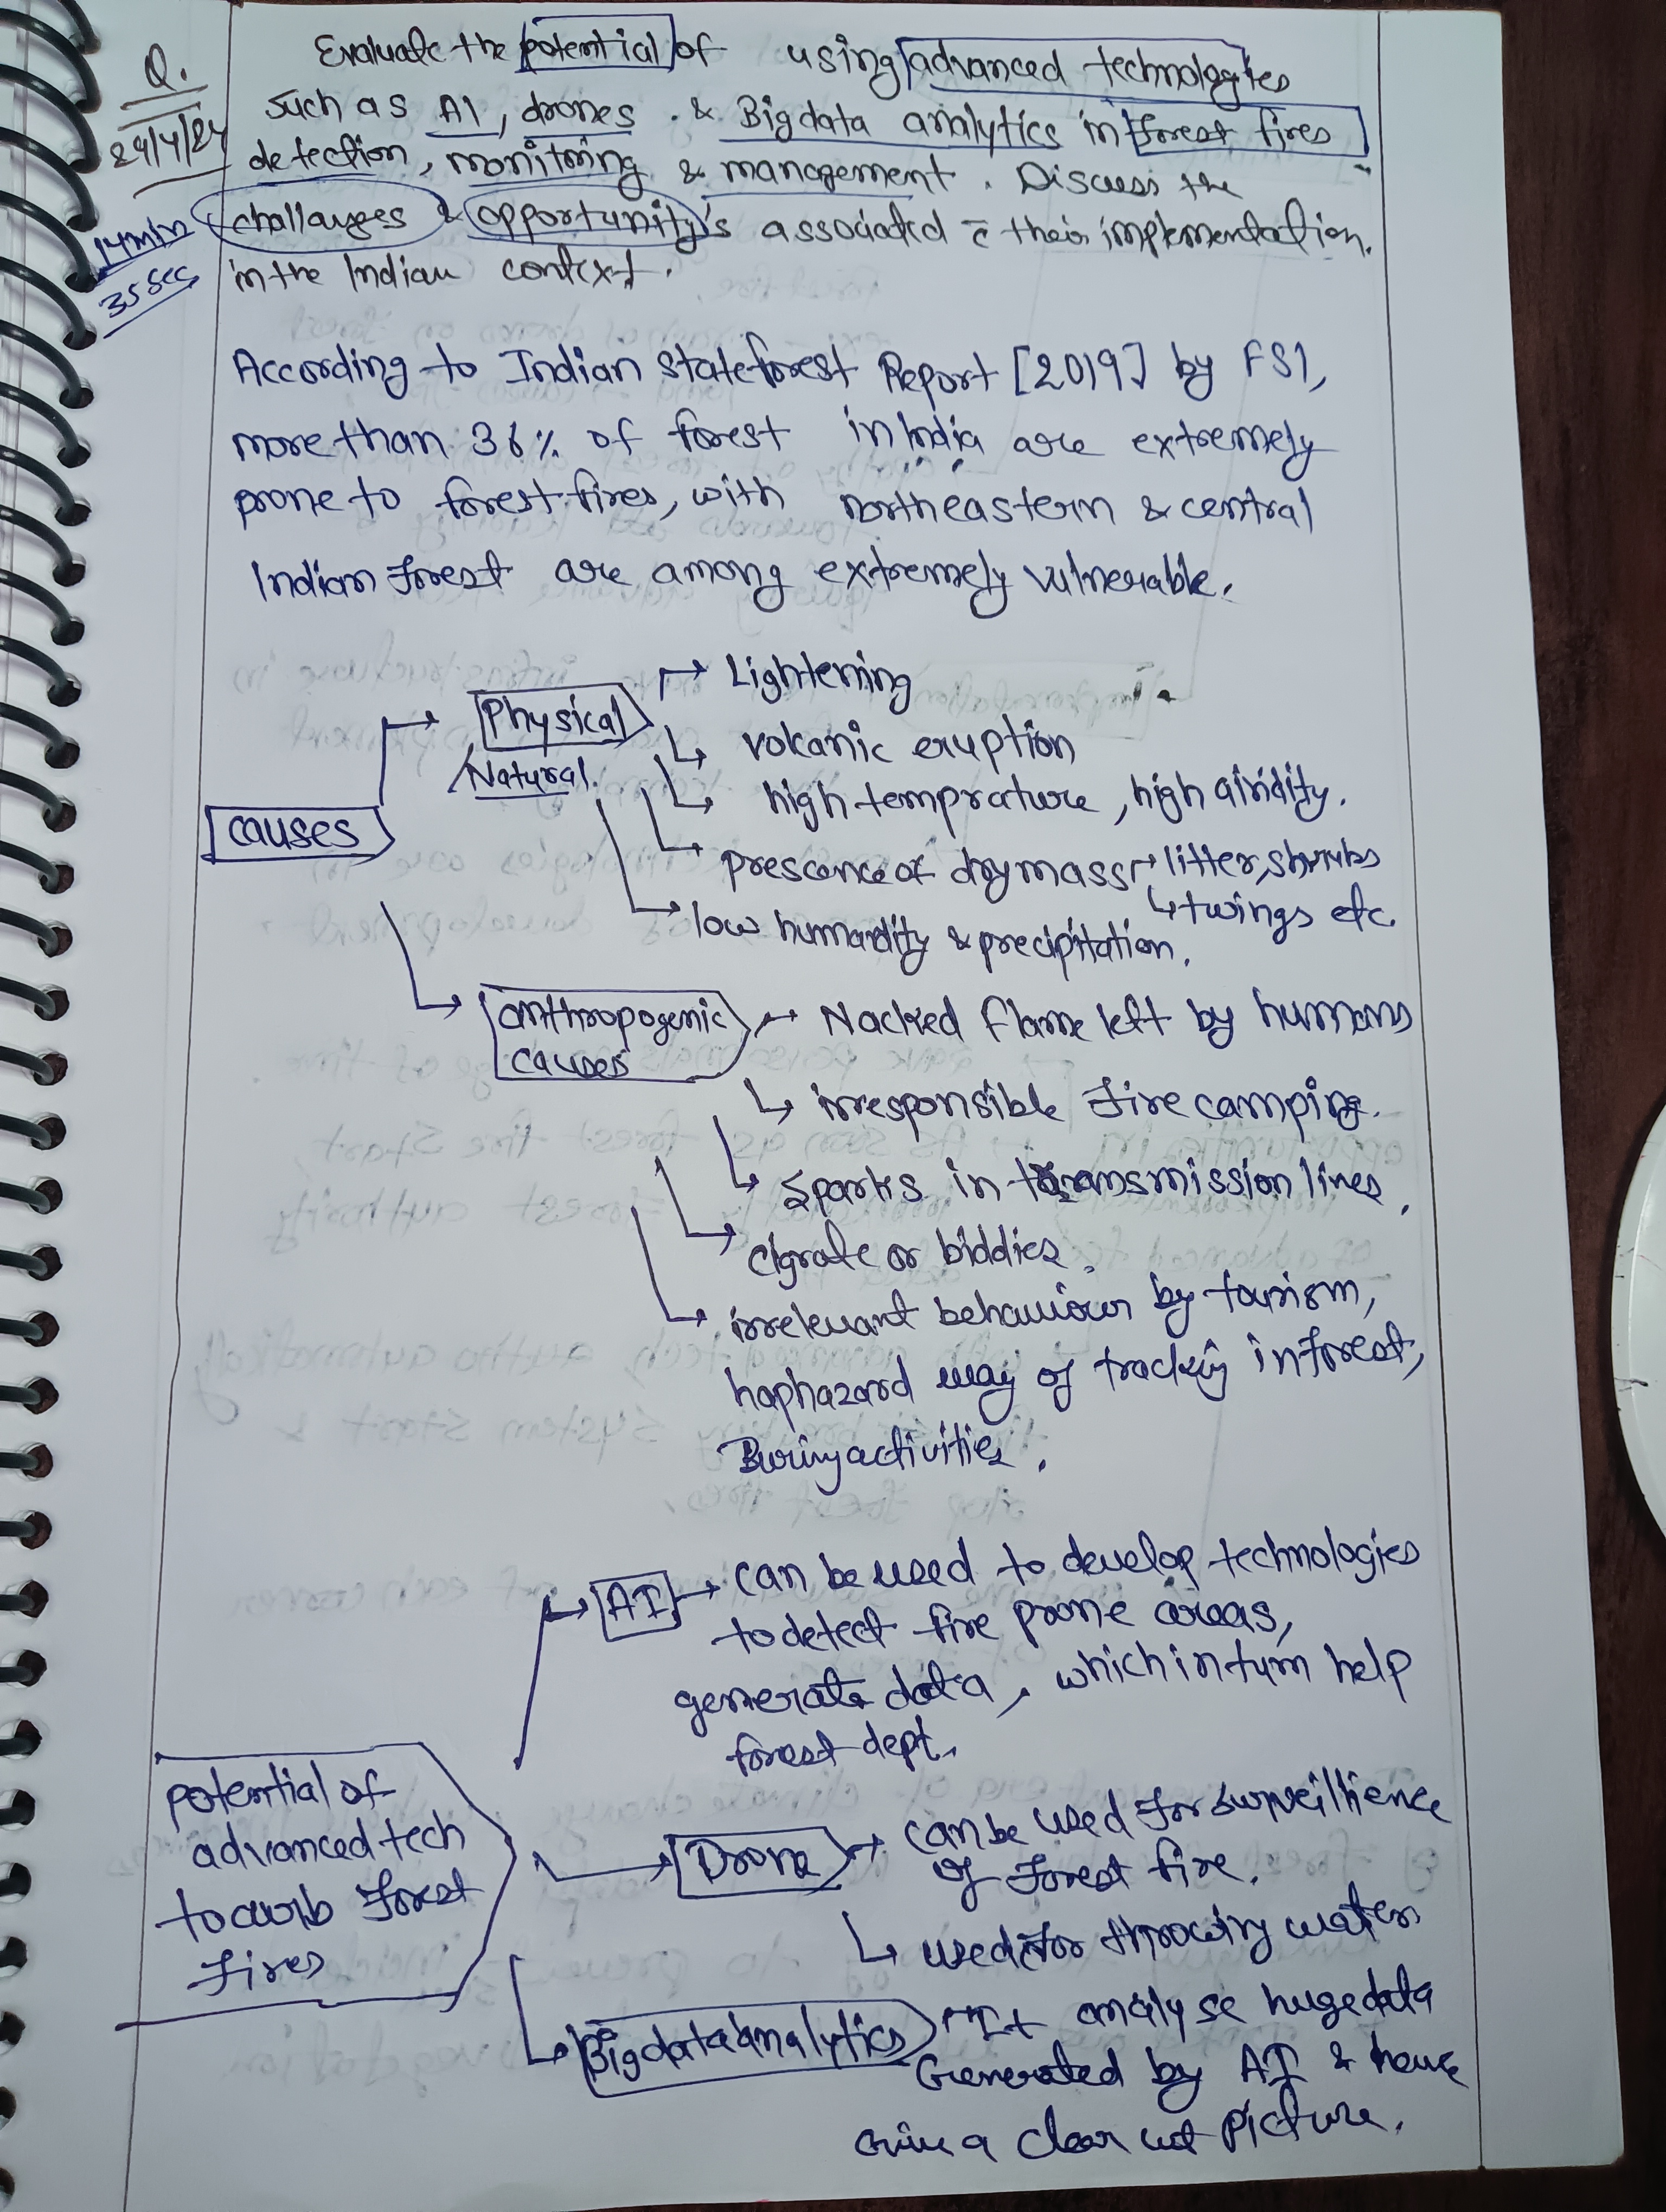 Q.
24/4/24
14min
35 sec
Evaluate the potential of using advanced technologies
such as AI, drones & Bigdata analytics in forest fires
detection, monitoring & management. Discuss the
challanges & opportunity's associated c̄ their implementation
in the Indian context.
According to Indian state forest Report [2019] by FSI,
more than 36% of forest in India are extremely
prone to forest fires, with northeastern & central
Indian forest are among extremely vulnerable.
causes
Physical
/Natural.
Lightening
volcanic eruption
high temprature, high aridity.
prescence of dry mass litter, shrubs
twings etc.
low humandity & precipitation.
anthropogenic
causes
Nacked flame left by humans
irresponsible fire camping.
sparks in transmission lines.
cigrate or biddies.
irrelevant behaviour by tourism,
haphazard way of tracking in forest,
activities.
potential of
advanced tech
to curb forest
fires
AI
can be used to develop technologies
to detect fire prone areas,
generate data, which inturn help
forest dept.
Drone
can be used for surveillience
of forest fire.
used for throwing water
Bigdata analytics
It analyse huge data
Generated by AI & hence
give a clear cut picture.